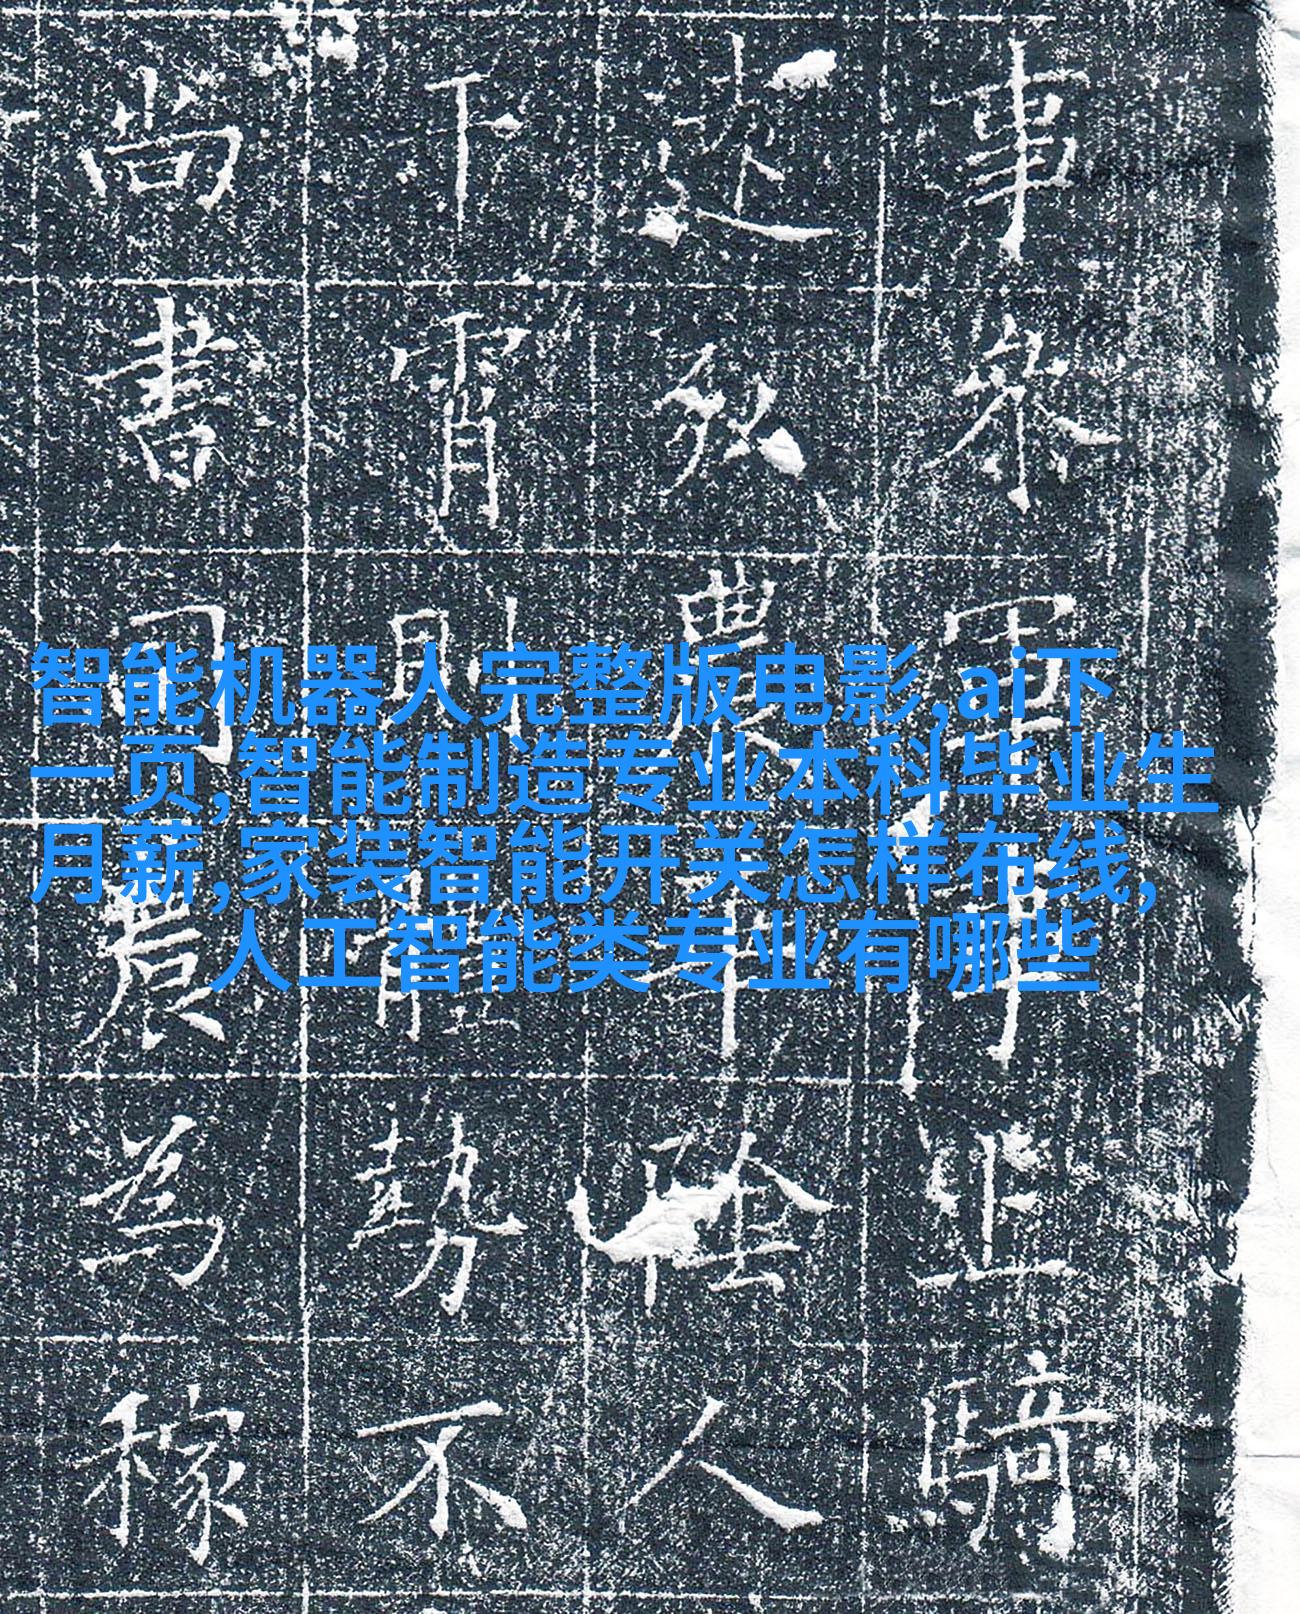 智能机器人完整版电影,ai下
一页,智能制造专业本科毕业生
月薪,家装智能开关怎样布线,
人工智能类专业有哪些
事參軍事騎
弘農華陰人
下霄則體勢不
尚書司農為稼